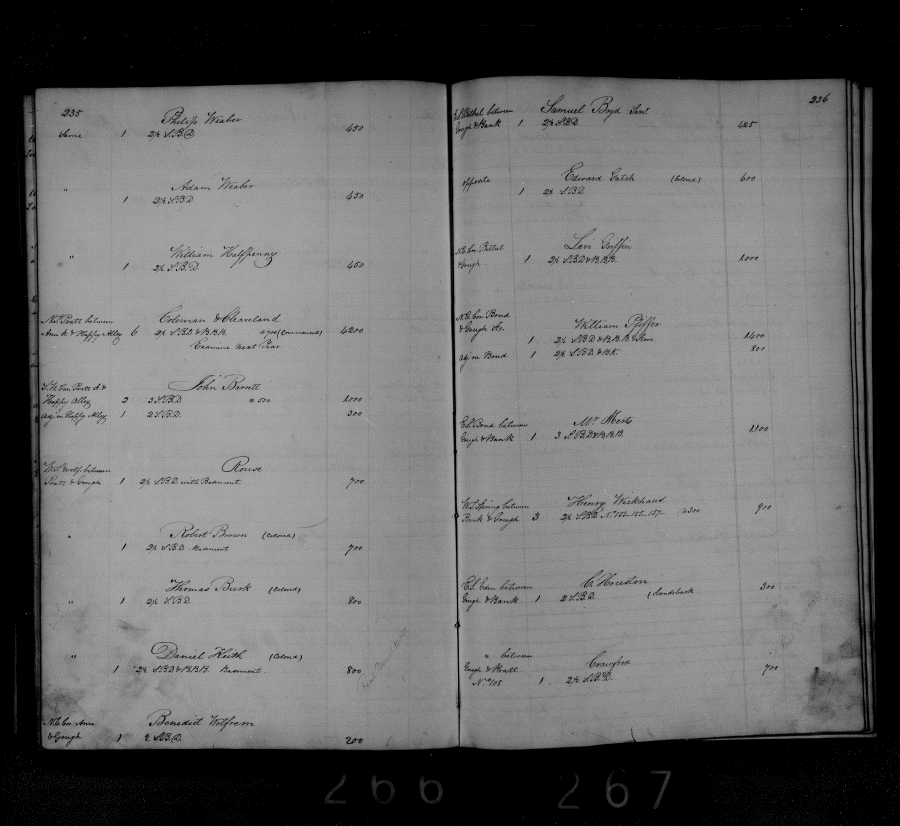 235
Philip Weaber
Same 1 2½ S.B.D. 450
" Adam Weaber
1 2½ S.B.D 450
" William Halfpenny
1 2½ S.B.D. 450
N.S. Pratt between Coleman & Cleaveland
Ann St & Happy Alley 6 2½ S.B.D. & B.B.B. @ 700 (Unfinished) 4200
Examine next Year
S.W. Cor. Pratt St. & John Barrett
Happy Alley 2 3 S.B.D. @ 500 1000
adjon Happy Alley 1 2 S.B.D. 300
W.S. Wolf between Rouse
Pratt & Gough 1 2½ S.B.D. with Basement 700
" Robert Brown (Colored)
1 2½ S.B.D. Basement 700
Thomas Busk (Colored)
" 1 2½ S.B.D. 800
" Daniel Keith (Colored)
1 2½ S.B.D & B.B.B. Basement 800
N.E. Cor Ann Benedict Wolfrem
& Gough 1 2 S.B.D. 200
236
Bethel between Samuel Boyd Senr.
Gough & Bank 1 2½ S.B.D. 425
opposite Edward Gatch (Colored) 600
1 2½ S.B.D.
N.E. Cor. Bethel Levi Griffin
& Gough 1 2½ S.B.D & B.B.B. 1000
N.E. Cor Bond
& Gough Sts. William Pfiffer
1 2½ S.B.D & B.B.B. & Store 1400
adjon Bond 1 2½ S.B.D. & B.K. 800
E.S. Bond between Mr. Merts
Gough & Bank 1 3 S.B.D & B.B.B. 1100
W.S. Spring between Henry Wickhaus
Bank & Gough 3 2½ S.B.D. No. 153-155-157- @ 300 900
E.S. Eden between C. Houston 300
Gough & Bank 1 2 S.B.D.
" between Crawford
Gough & Pratt 700
No. 108 1 2½ S.B.D.
266 267